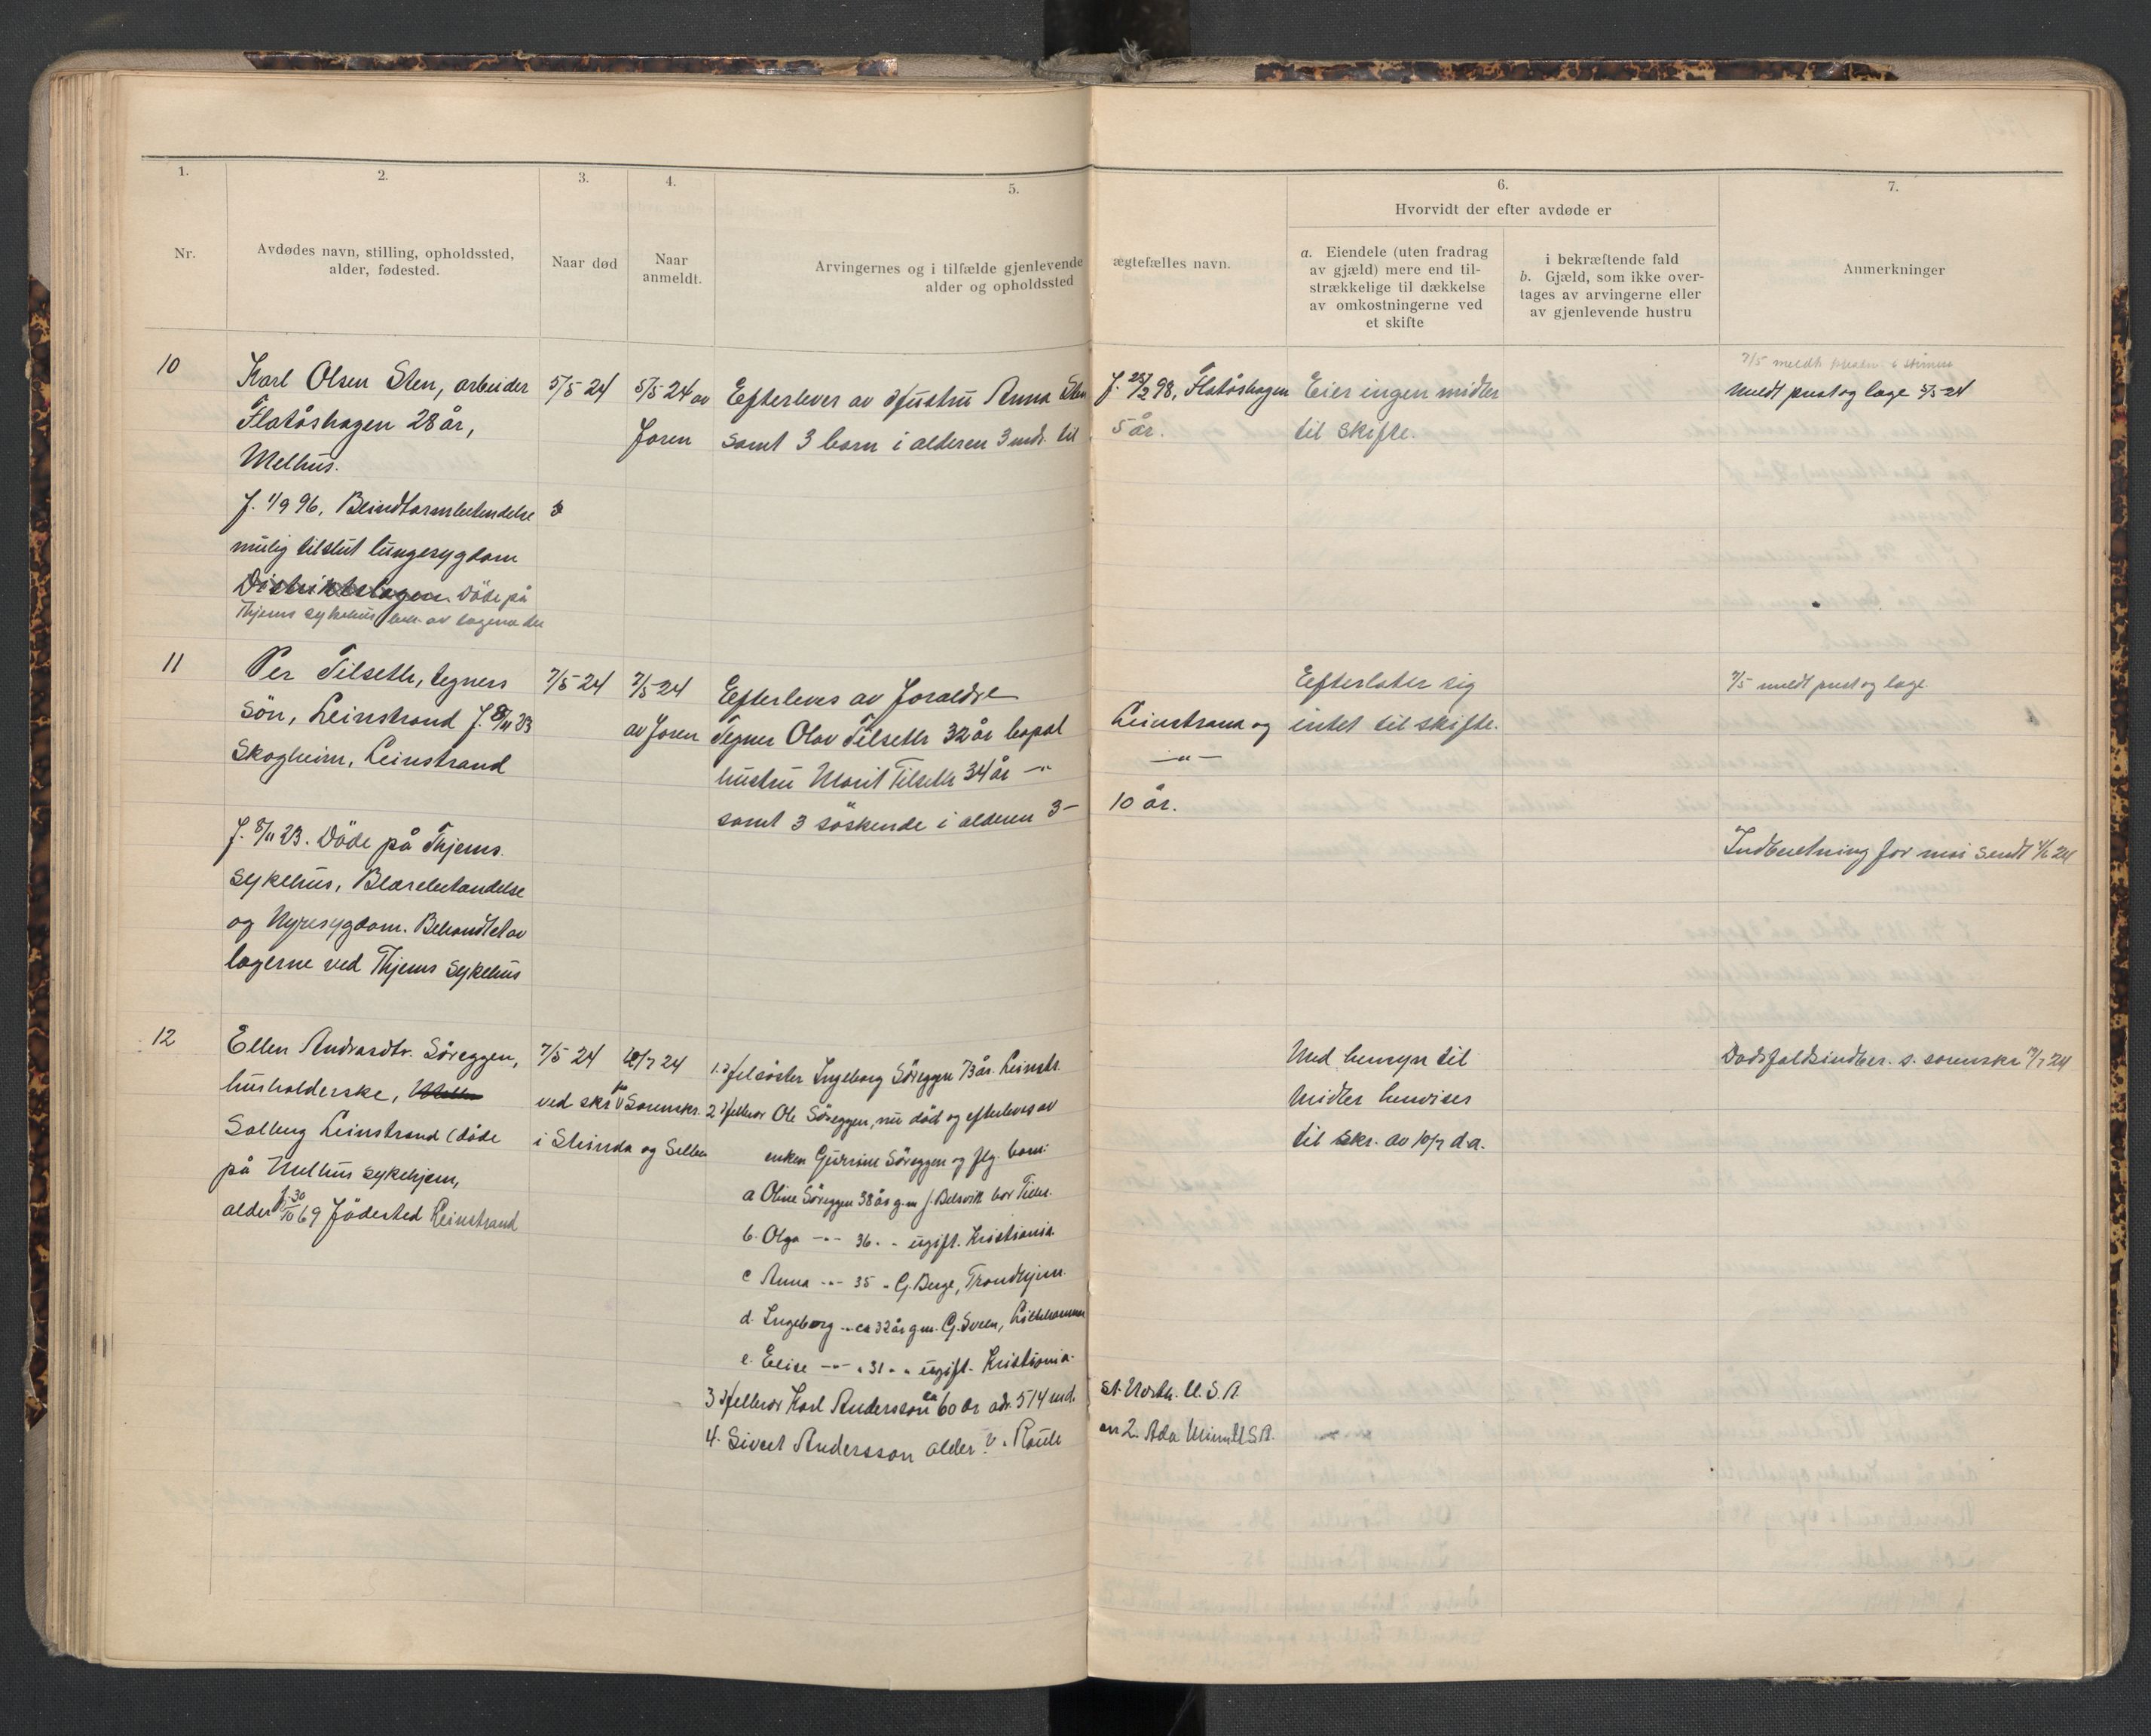 1.
2.
3.
4.
5.
6.
7.
Nr.
Avdødes navn, stilling, opholdssted,
alder, fødested.
Naar død
Naar
anmeldt.
Arvingernes og i tilfælde gjenlevende ægtefælles navn.
alder og opholdssted
Hvorvidt der efter avdøde er
a. Eiendele (uten fradrag
av gjæld) mere end til-
strækkelige til dækkelse
av omkostningerne ved
et skifte
i bekræftende fald
b. Gjæld, som ikke over-
tages av arvingerne eller
av gjenlevende hustru
Anmerkninger
10
Karl Olsen Sten, arbeider
Flatåshagen 28 år,
Melhus.
f. 1/9 96. Blindtarmbetendelse
mulig tilslut lungesygdom
Distriktslægen. Döde på
Thjems sykehus beh. av lægene der
5/5 24
5/5 24 av
Faren
Efterleves av Hustru Anna Sten f. 25/2 98, Flatåshagen
samt 3 barn i alderen 3 mdr. til 5 år.
Eier ingen midler
til skifte.
7/5 meldt
Meldt prest og læge 5/5-24
11
Per Tilseth, tegners
sön, Leinstrand f. 8/11 23
Skogheim, Leinstrand
f. 8/11 23. Döde på Thjems.
sykehus, Blærebetændelse
og Nyresygdom. Behandlet av
lægerne ved Thjems sykehus
7/5 24
7/5 24
av Faren
Efterleves av Foraldre
Tegner Olav Tilseth 32 år bopæl Leinstrand og
hustru Marit Tilseth 34 år -"- -"-
samt 3 söskende i alderen 3- 10 år.
Efterlater sig
intet til skifte.
7/5 meldt prest og læge.
Indberetning for mai sendt 4/6 24
12
Ellen Andrasdtr. Söreggen,
husholderske,
Solberg Leinstrand (döde
på Melhus sykehjem,
alder f. 30/10 69 Födested Leinstrand
7/5 24
ved skr fra Sorenskr.
i Strinda og Selbu
10/7 24
1. Helsöster Ingeborg Söreggen 73 år. Leinstr.
2 Helbror Ole Söreggen, nu död og efterleves av
enken Gurine Söreggen og flg. barn:
a Oline Söreggen 38 år g.m J. Belsvik bor Tiller.
b. Olga -"- 36 " - ugift. Kristiania.
c Anna -"- 35 " G. Berge, Trondhjem.
d. Ingeborg " ca 32 år g.m. G. Sveen, Lillehammer
e. Elise -"- " 31 " " ugift. Kristiania.
3 Helbror Karl Andersson ca 60 år adr. 514 end. St. North. U.S.A.
4. Sivert Andersson alder ? " Route nr 2. Ada Minn U.S.A.
Med hensyn til
Midler henvises
til skr. av 10/7 d.a.
Dødsfaldsindber. s. sorenskr 12/7 24